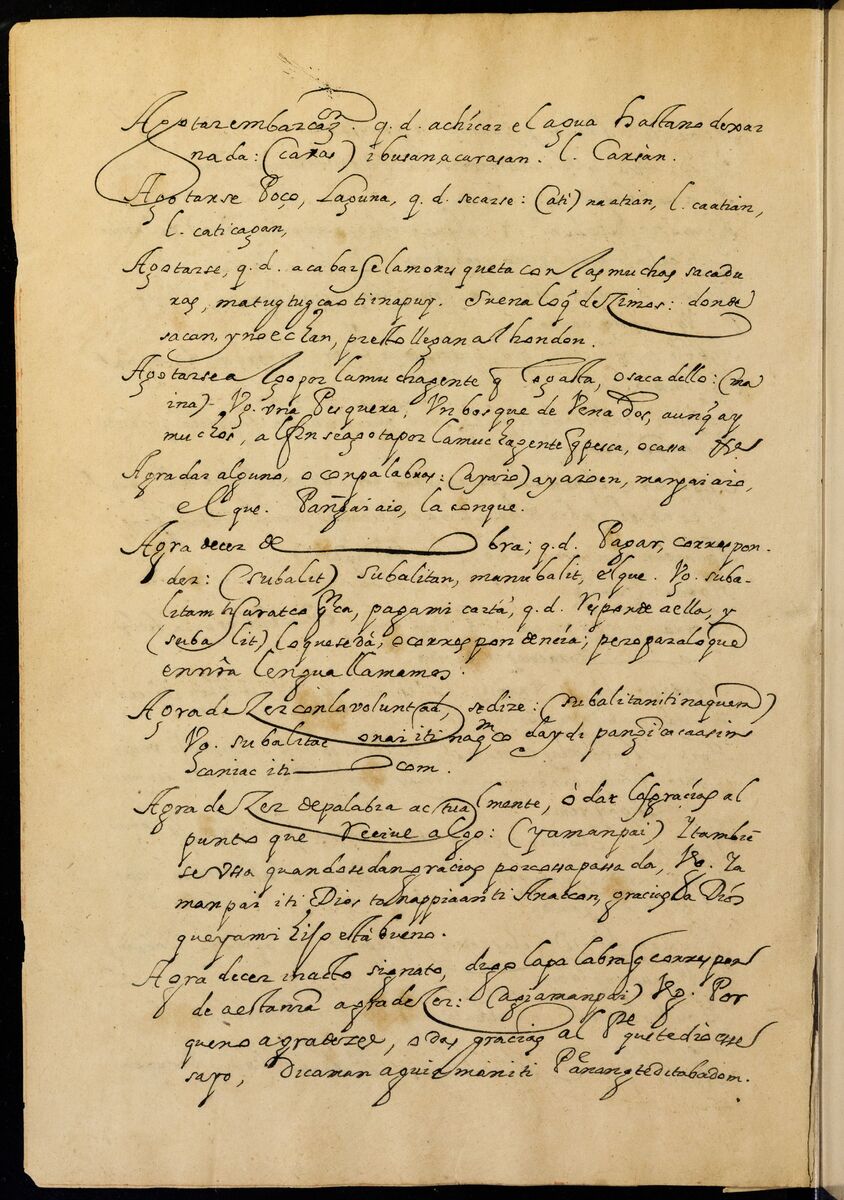 Agotar embarcaon. q. d. achicar el agua hasta no dexar
nada: (caras) ibusan, acurasan. l. Carsàn.
Agotarse Poço, Laguna, q. d. secarse: (ati) maatian, l. caatian,
l. caticagan,
Agotarse, q. d. acabarse la morisqueta con las muchas sacadu
ras, matugtugcao ti inapuy. Suena lo q̃ dezimos: donde
sacan, y no echan, presto llegan al hondon.
Agotarse algo por la mucha gente q̃ lo gasta, o saca dello: (ma
ina) Vg. vna Pesquera, Vn bosque de Venados, aunq̃ ay
muchos, al fin se agota por la mucha gente q̃ pesca, o cassa
Agradar alguno, o con palabras: (ayaio) ayaioen, mangaiaio,
el que. Pangaiaio, la conque.
Agradecer de obra; q. d. Pagar, correspon-
der: (subalit) subalitan, manubalit, el que. Vg. suba-
litam ti suratco qca, paga mi carta, q. d. responde a ella, y
(subalit) lo que se dà, o correspondencia; pero para lo que
en nr̃a lengua llamamos.
Agradezer con la voluntad, se dize: (subalitan iti naquem)
Vg. subalitac onai iti naqmco daydi pangicacaasim
caniac iti com.
Agradezer de palabra actualmente, ò dar las gracias al
punto que reciue algo: (yamanpai) Y tambiẽ
se vssa quando se dan gracias por cossa passada, Vg. Ya
manpai iti Dios ta nappia an ti Anacco, gracias a Diós
que ya mi hijo està bueno.
Agradecer in acto signato, digo la palabra q̃ correspon
de a esta nr̃a agradezer: (agiamanpai) Vg. Por
que no agradezes, o das gracias al Pe que te dio esse
sayo, Dicaman aguiamaniti Pe